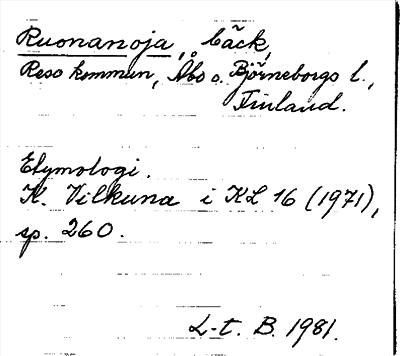 Ruonanoja, bäck,
Reso kommun, Åbo o. Björneborgs l.,
Finland.
Etymologi.
K. Vilkuna i KL 16 (1971),
sp. 260.
L-t. B. 1981.